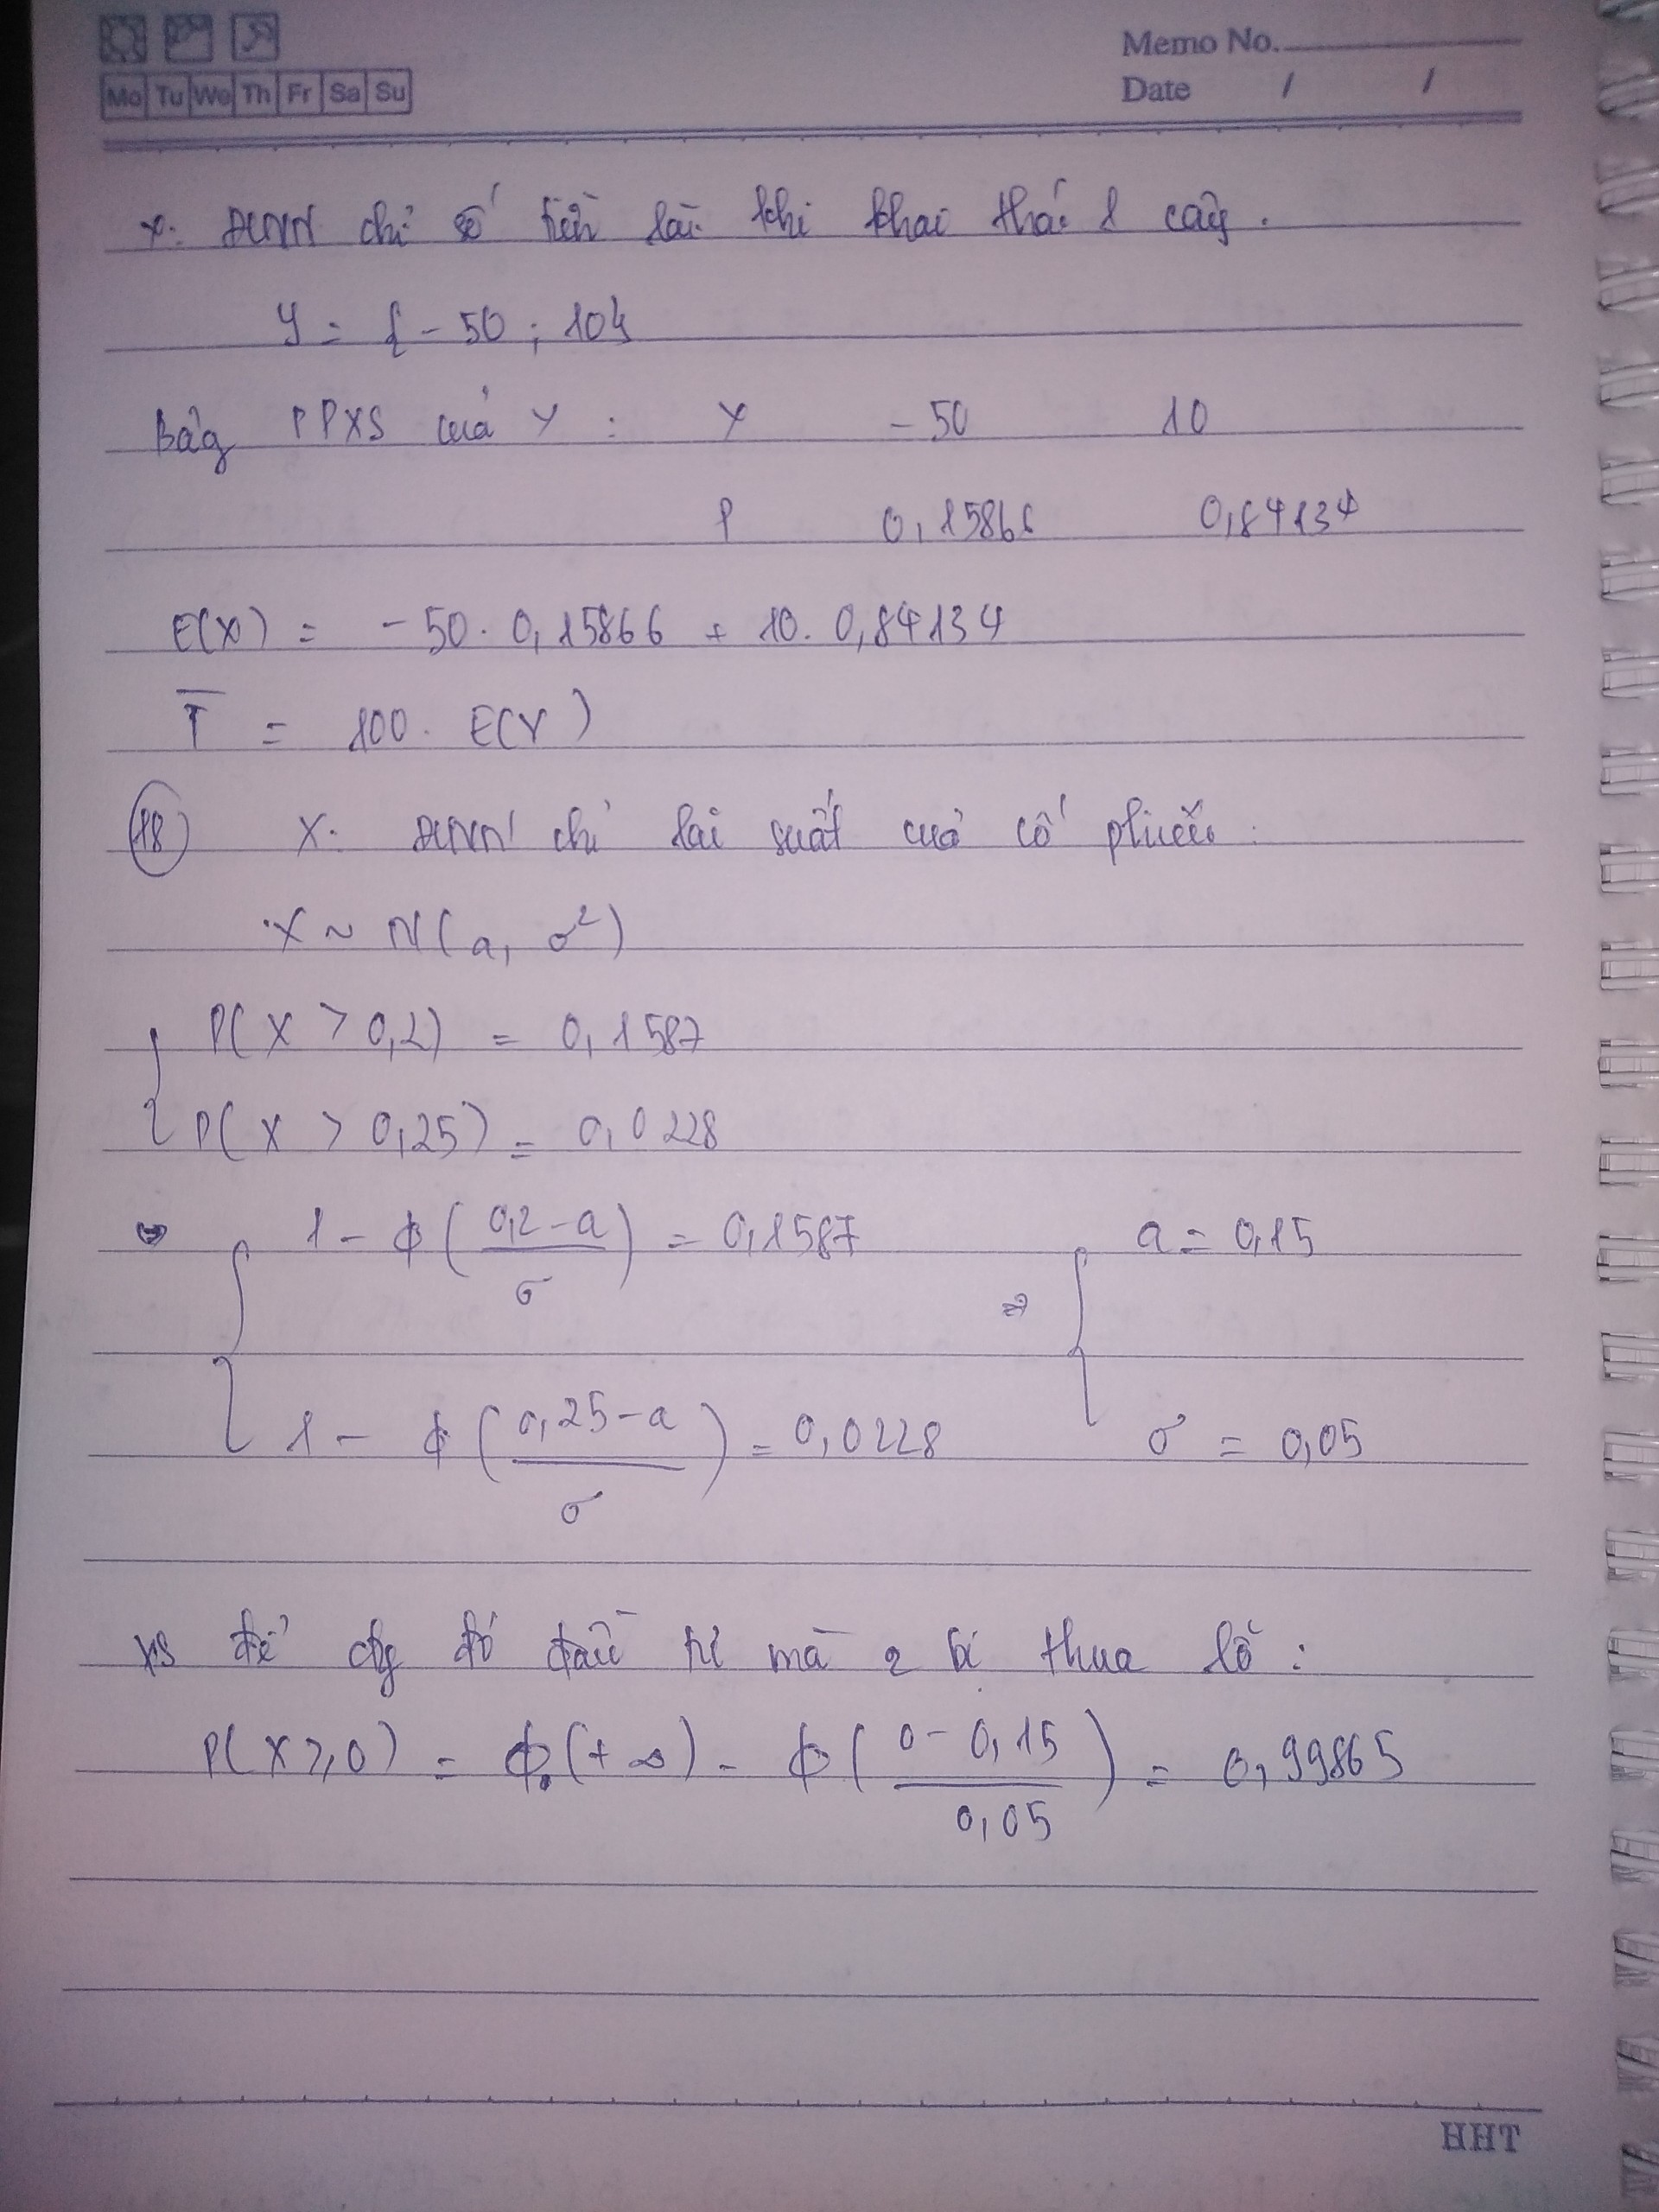 Mo Tu We Th Fr Sa Su
Memo No.
Date / /
Y: ĐLNN chỉ số tiền lãi khi khai thác 1 cây.
Y = { - 50 ; 10 }
Bảg PPXS của Y : Y - 50 10
P 0,15866 0,84134
E(Y) = - 50 . 0,15866 + 10 . 0,84134
T̅ = 100 . E(Y)
(18) X: ĐLNN chỉ lãi suất của cổ phiếu :
X ~ N(a, σ²)
P(X > 0,2) = 0,1587
P(X > 0,25) = 0,0228
1 - ϕ((0,2 - a)/σ) = 0,1587 ⇒ a = 0,15
1 - ϕ((0,25 - a)/σ) = 0,0228 σ = 0,05
XS để cty đó đầu tư mà bị thua lỗ :
P(X ≥ 0) = ϕ(+∞) - ϕ((0 - 0,15)/0,05) = 0,99865
HHT